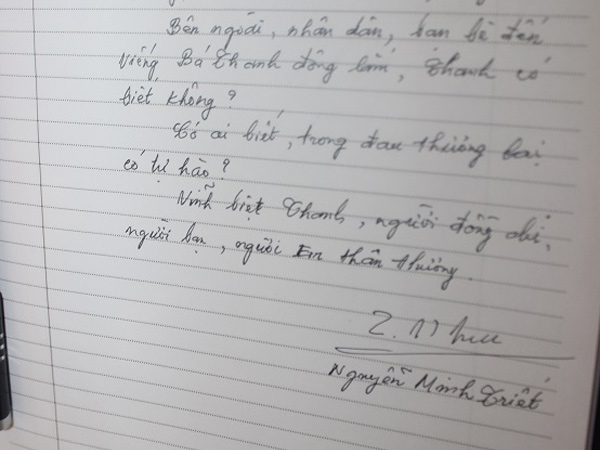 Bên ngoài, nhân dân, bạn bè đến
viếng Bá Thanh đông lắm, Thanh có
biết không?
Có ai biết, trong đau thương lại
có tự hào?
Vĩnh biệt Thanh, người đồng chí,
người bạn, người Em thân thương.
Nguyễn Minh Triết